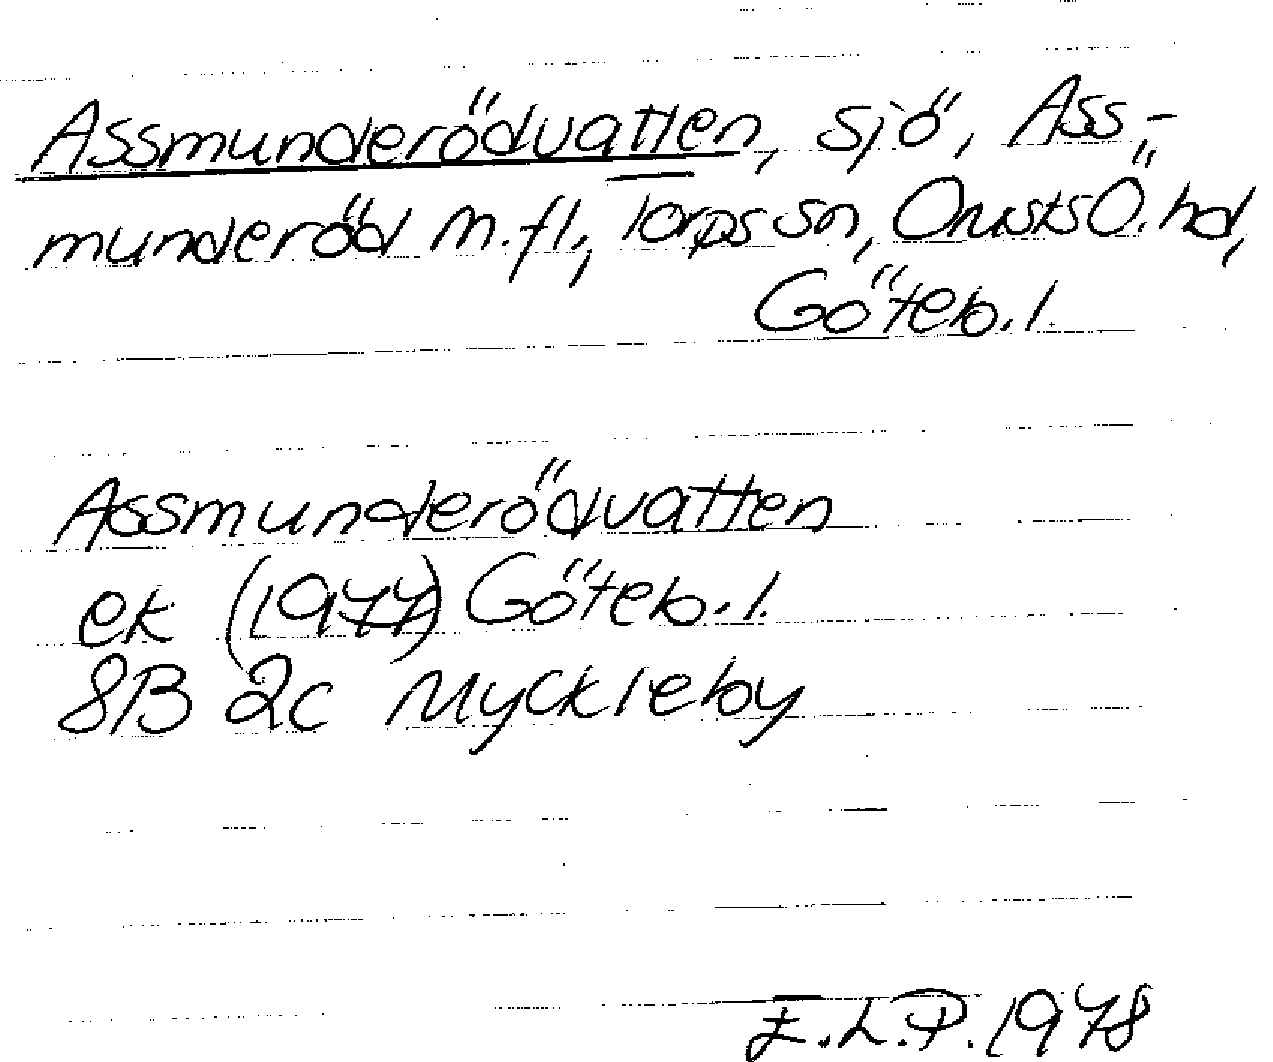 Assmunderödvatten, sjö, Ass-
munderöd m.fl., Torps sn, Orusts Ö. hd,
Göteb. l.
Assmunderödvatten
ek (1977) Göteb. l.
8B 2c Myckleby
E.L.P. 1978